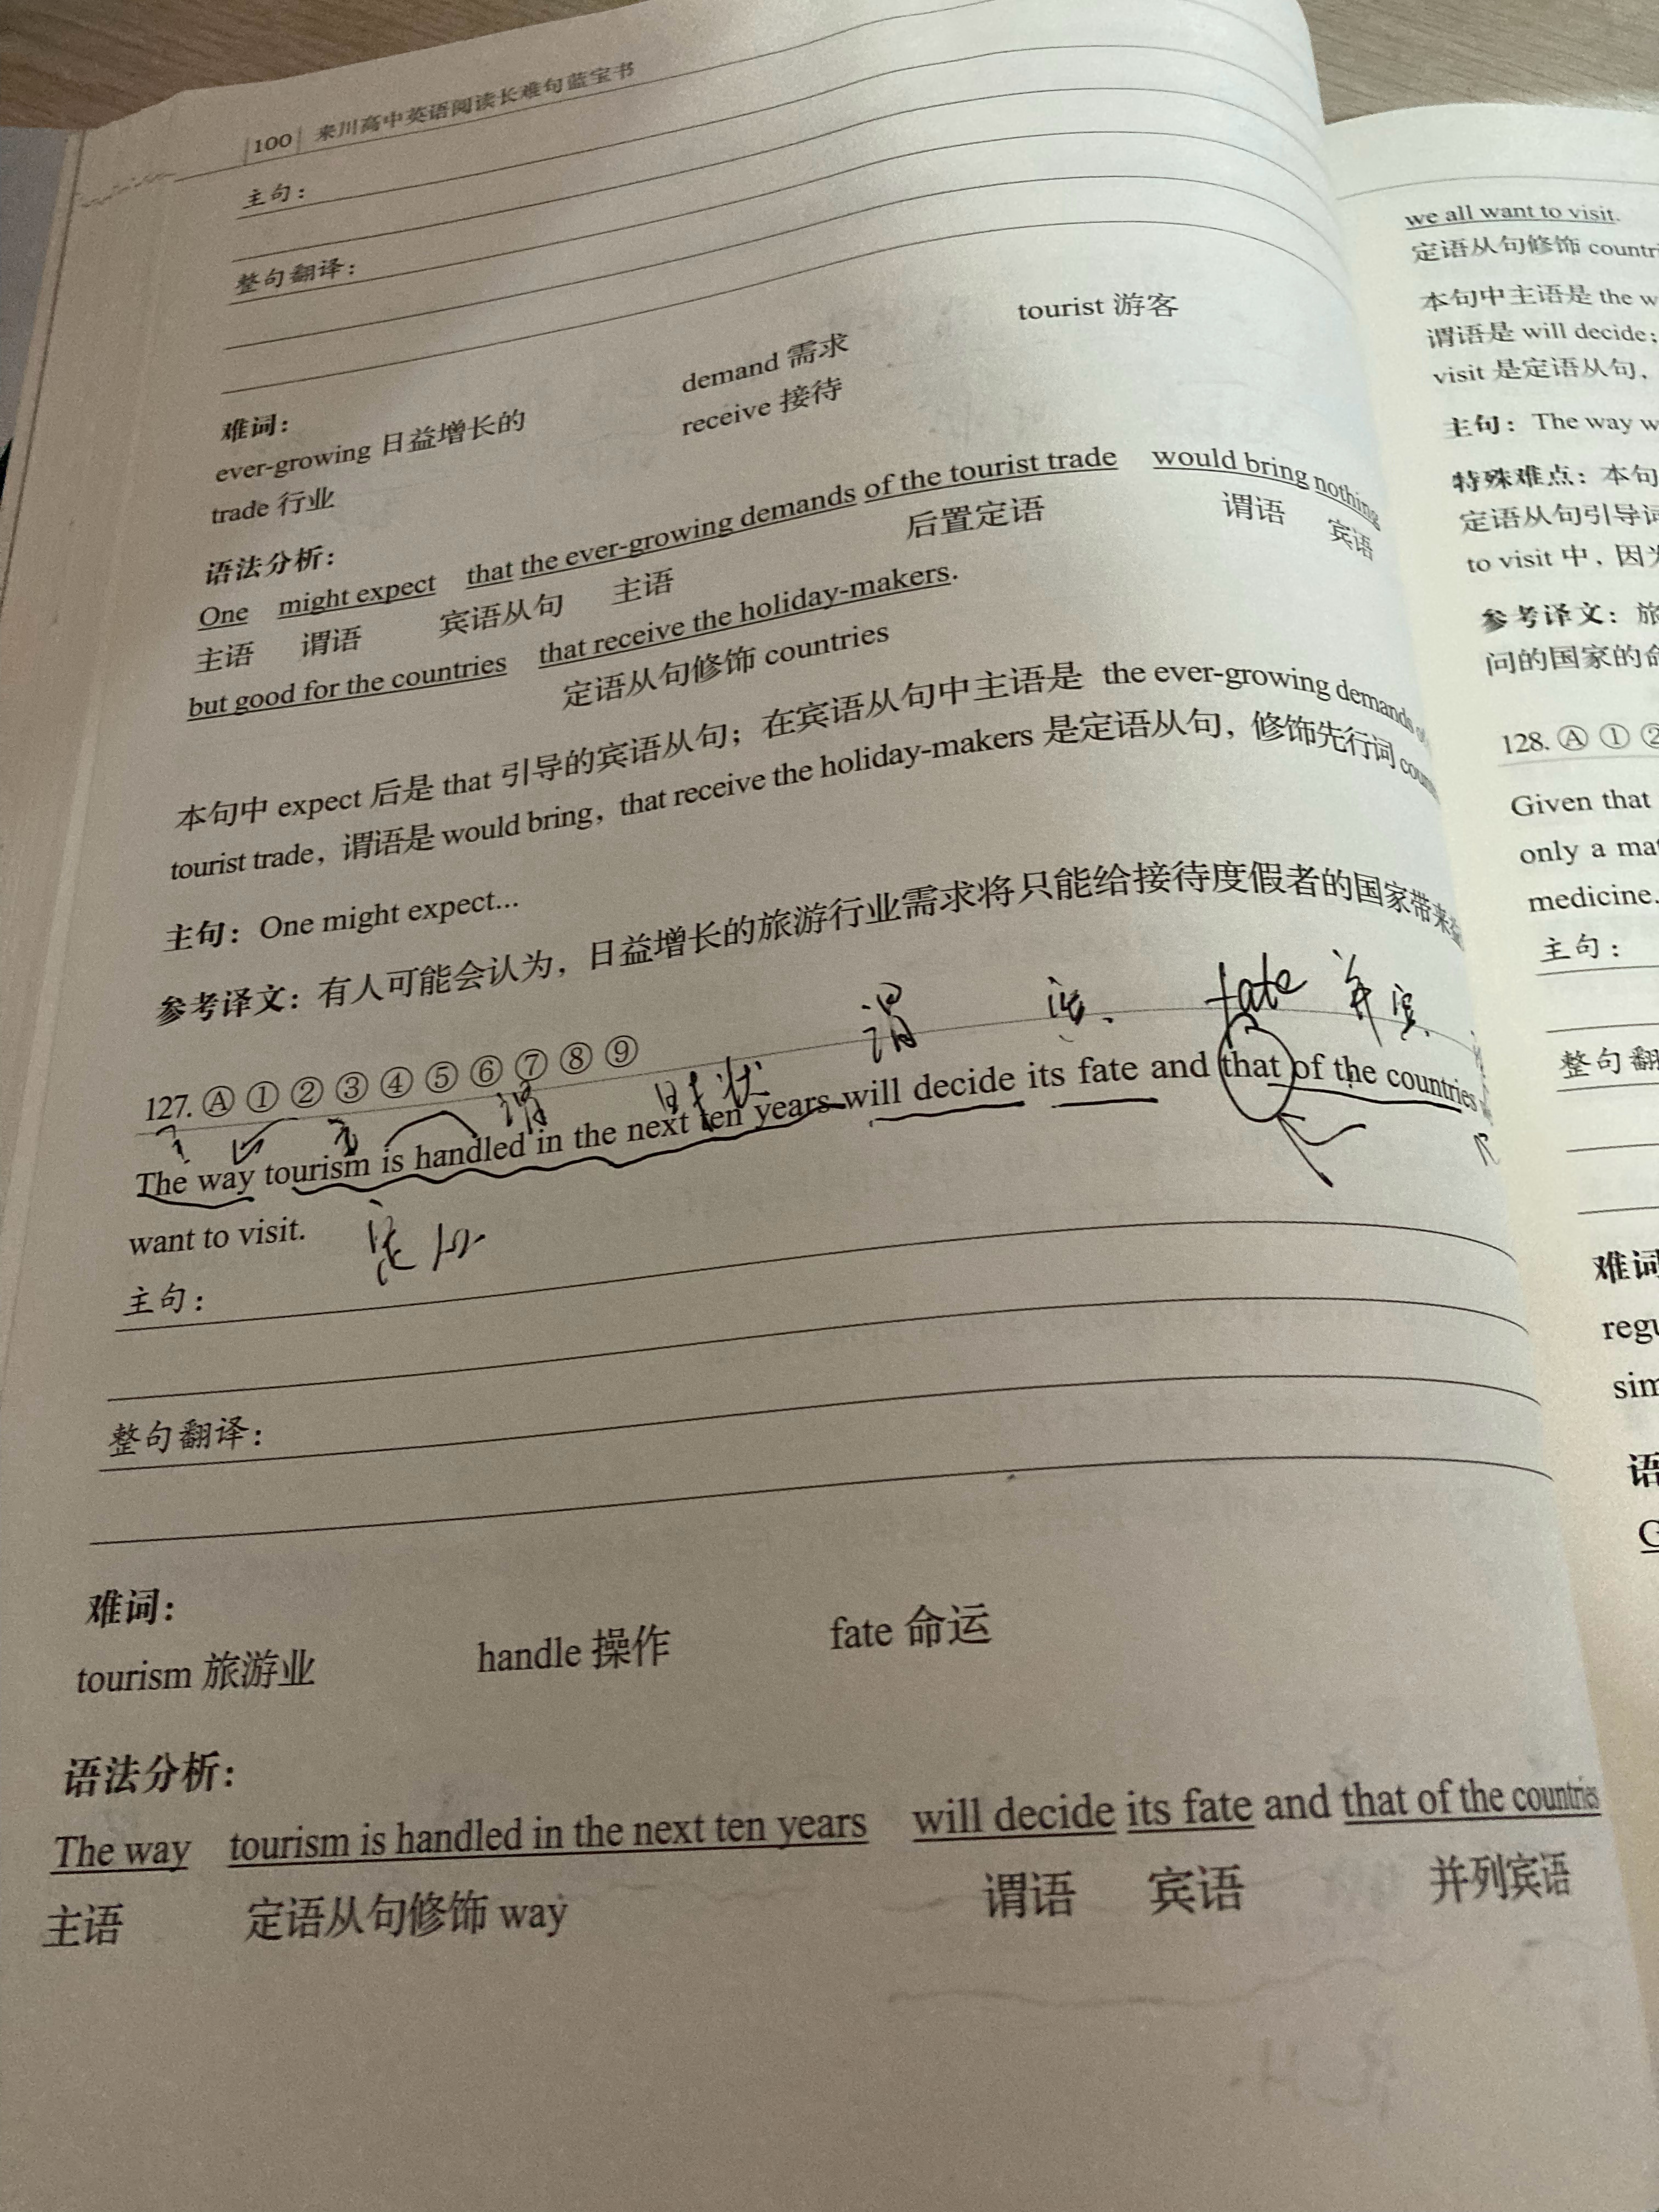 100 来川高中英语阅读长难句蓝宝书
主句：
整句翻译：
难词：
ever-growing 日益增长的 demand 需求 tourist 游客
trade 行业 receive 接待
语法分析：
One might expect that the ever-growing demands of the tourist trade would bring nothing
主语 谓语 宾语从句 主语 后置定语 谓语 宾语
but good for the countries that receive the holiday-makers.
定语从句修饰 countries
本句中 expect 后是 that 引导的宾语从句；在宾语从句中主语是 the ever-growing demands of
tourist trade，谓语是 would bring，that receive the holiday-makers 是定语从句，修饰先行词
主句：One might expect...
参考译文：有人可能会认为，日益增长的旅游行业需求将只能给接待度假者的国家带来
谓 宾. fate 并宾.
127. Ⓐ ① ② ③ ④ ⑤ ⑥ ⑦ ⑧ ⑨
谓 时状
The way tourism is handled in the next ten years will decide its fate and that of the countries
want to visit.
定从
主句：
整句翻译：
难词：
tourism 旅游业 handle 操作 fate 命运
语法分析：
The way tourism is handled in the next ten years will decide its fate and that of the countries
主语 定语从句修饰 way 谓语 宾语 并列宾语
we all want to visit.
定语从句修饰
本句中主语是 the
谓语是 will decide；
visit 是定语从句，
主句：The way
特殊难点：本句
定语从句引导词
to visit 中，因为
参考译文：旅
问的国家的命
128. Ⓐ ① ②
Given that
only a
medicine.
主句：
整句翻
难词
语